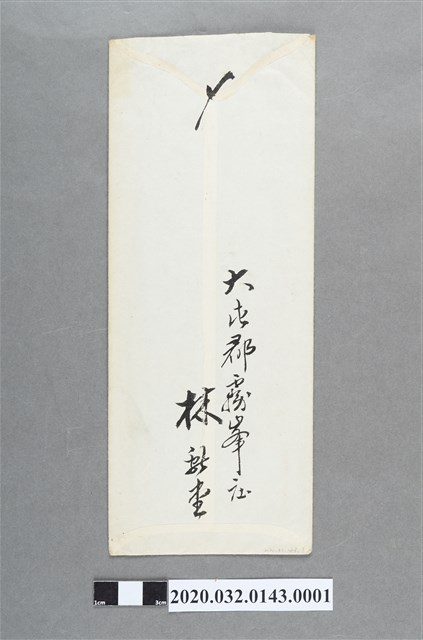 〆
大屯郡霧峯庄
林獻堂
1cm
3cm
2020.032.0143.0001